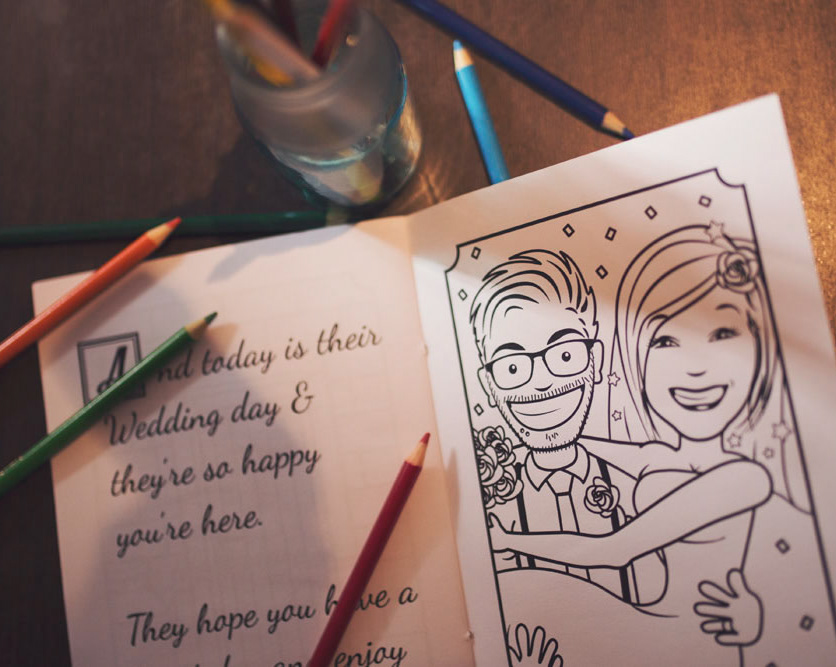 And today is their
Wedding day &
they're so happy
you're here.
They hope you have a
enjoy